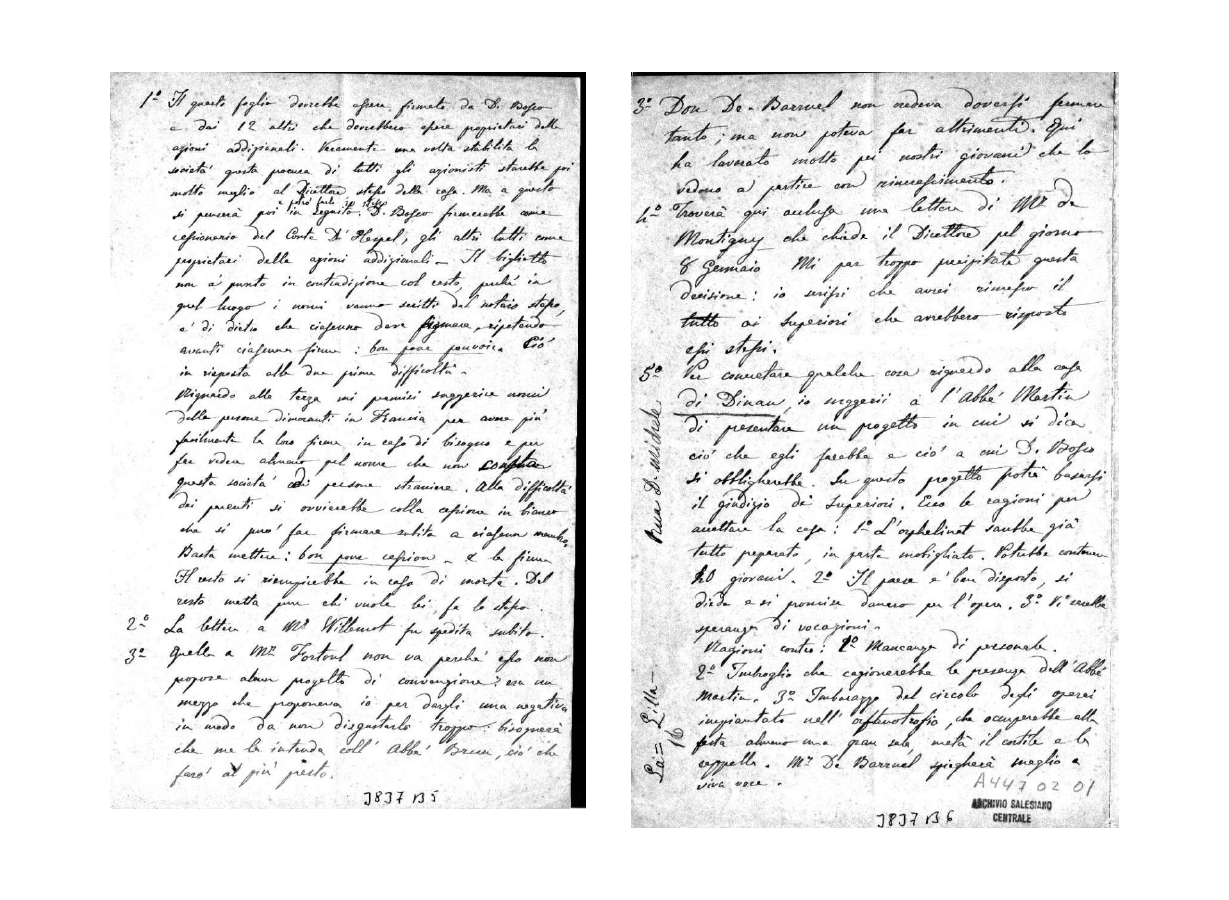 1º Il questo foglio dovrebbe essere firmato da D. Bosco
e dai 12 altri che dovrebbero essere proprietari delle
azioni addizionali. Veramente una volta stabilita la
società questa procura di tutti gli azionisti starebbe poi
molto meglio al Direttore stesso della casa. Ma a questo
e potrà farlo
si penserà poi in seguito. D. Bosco firmerebbe come
cessionario del Conte D'Hespel, gli altri tutti come
proprietari delle azioni addizionali. Il biglietto
non è punto in contradizione col resto, perché in
quel luogo i nomi vanno scritti dal notaio stesso,
e di dietro che ciascuno deve firmare, ripetendo
avanti ciascuna firma: bon pour pouvoir. Ciò
in risposta alle due prime difficoltà.
Riguardo alla terza mi permisi suggerire nomi
delle persone dimoranti in Francia per avere più
facilmente la loro firma in caso di bisogno e per
far vedere almeno pel nome che non consta
questa società di persone straniere. Alla difficoltà
dei parenti si ovvierebbe colla cessione in bianco
che si può far firmare subito a ciascun membro.
Basta mettere: bon pour cession. E la firma
Il resto si riempirebbe in caso di morte. Del
resto metta pure chi vuole lei, fa lo stesso.
2º La lettera a Mr Willemot fu spedita subito.
3º Quella a Mr. Fortoul non va perché esso non
propose alcun progetto di convenzione: era un
mezzo che proponeva io per dargli una negativa
in modo da non disgustarlo troppo: bisognerà
che me la intenda coll' Abbé Brun, ciò che
farò al più presto.
3837 B5
3º Don De-Barruel non credeva doversi fermare
tanto; ma non poteva far altrimenti. Qui
ha lavorato molto pei nostri giovani che lo
vedono a partire con rincrescimento.
4º Troverà qui acclusa una lettera di Mr de
Montigny che chiede il Direttore pel giorno
8 Gennaio Mi par troppo precipitata questa
decisione: io scrissi che avrei rimesso il
tutto ai Superiori che avrebbero risposto
essi stessi.
5º Per concretare qualche cosa riguardo alla casa
di Dinan, io suggerii a l'Abbé Martin
di presentare un progetto in cui si dica
ciò che egli farebbe e ciò a cui D. Bosco
si obbligherebbe. Su questo progetto potrà basarsi
il giudizio de' Superiori. Ecco le ragioni per
accettare la casa: 1º L'orphelinat sarebbe già
tutto preparato, in parte mobigliato. Potrebbe contenere
40 giovani. 2º Il paese è ben disposto, si
diede e si promise danaro per l'opera. 3º Vi sarebbe
speranza di vocazioni.
Ragioni contro: 1º Mancanza di personale.
2º Imbroglio che cagionerebbe la presenza dell'Abbé
Martin. 3º Imbarazzo del circolo degli operai
impiantato nell' orfanotrofio, che occuperebbe alla
festa almeno una gran sala, metà il cortile e la
cappella. Mr De Barruel spiegherà meglio a
viva voce.
Rua D. Michele
Lilla
16
A447 02 01
ARCHIVIO SALESIANO
CENTRALE
3837 B6